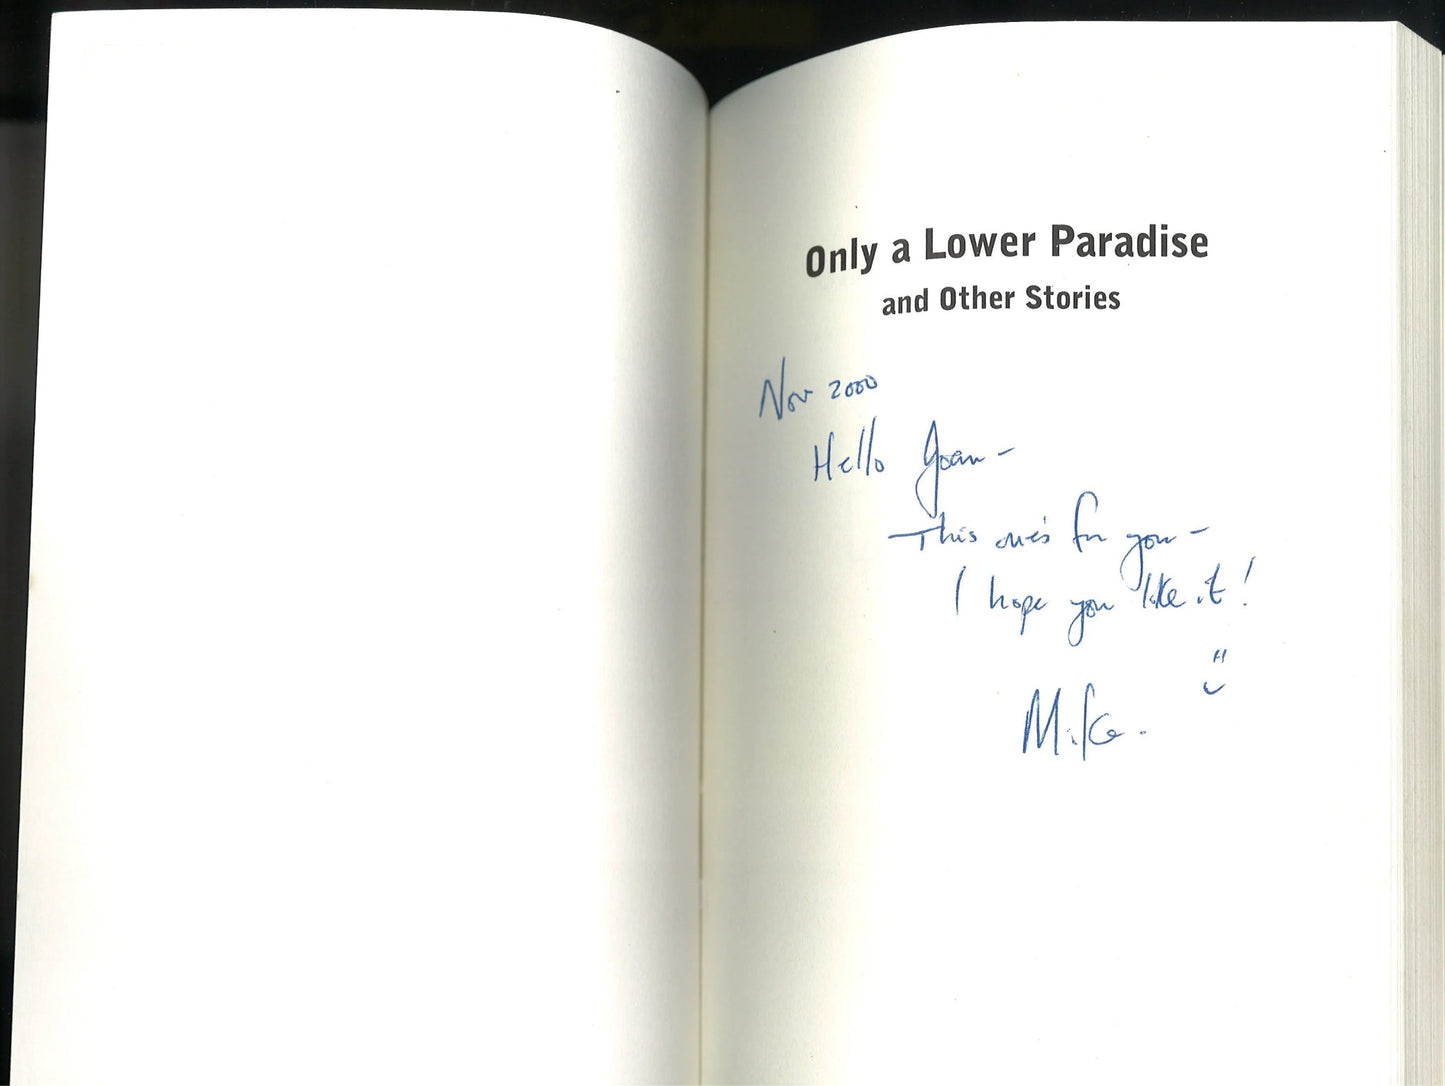 Only a Lower Paradise
and Other Stories
Nov 2000
Hello Joan -
This one's for you -
I hope you like it!
Mike.